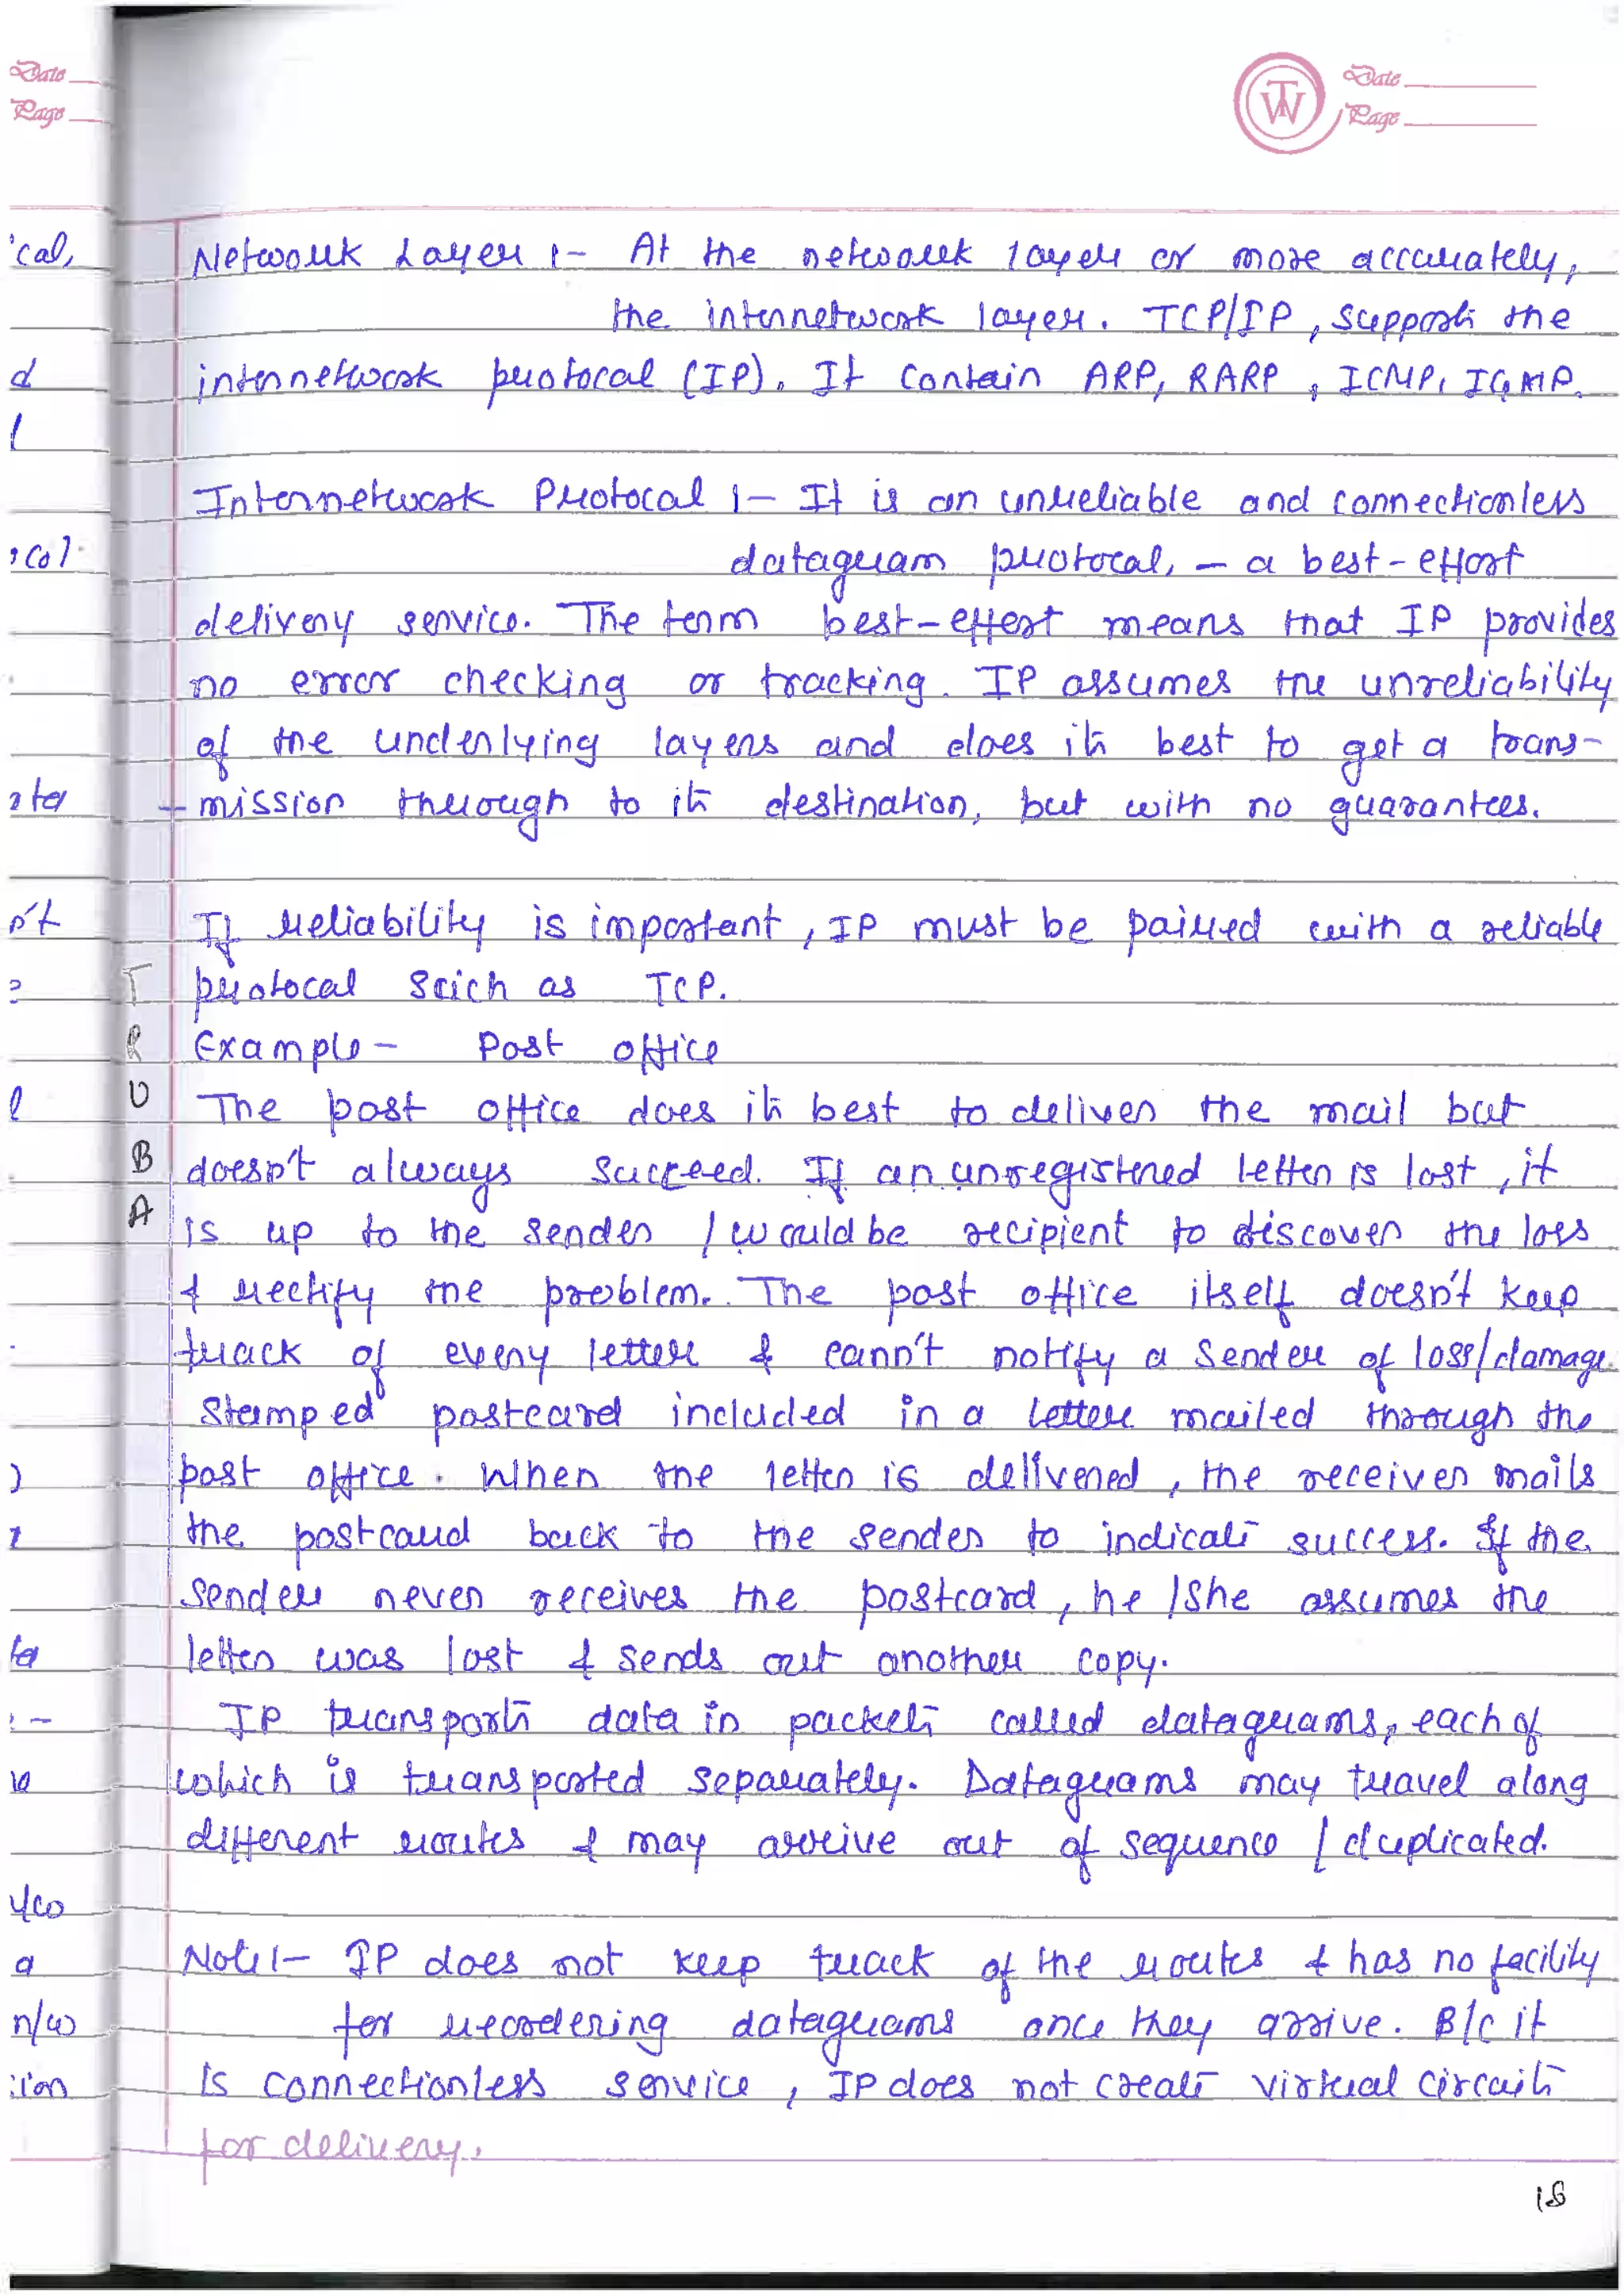 Date
Page
TW
Date
Page
Network Layer :- At the network layer or more accurately,
the internetwork layer. TCP/IP, supports the
internetwork protocal (IP). It contain ARP, RARP, ICMP, IGMP.
Internetwork Protocal :- It is an unreliable and connectionless
datagram protocal, - a best-effort
delivery service. The term best-effort means that IP provides
no error checking or tracking. IP assumes the unreliability
of the underlying layers and does its best to get a trans-
-mission through to its destination, but with no guarantees.
If reliability is important, IP must be paired with a reliable
protocal such as TCP.
Example- Post office
The post office does its best to deliver the mail but
doesn't always succeed. If an unregistered letter is lost, it
is up to the sender / would be recipient to discover the loss
& rectify the problem. The post office itself doesn't keep
track of every letter & cann't notify a sender of loss/damage.
Stamped postcard included in a letter mailed through the
post office. When the letter is delivered, the receiver mails
the postcard back to the sender to indicate success. If the
sender never receives the postcard, he/she assumes the
letter was lost & sends out another copy.
IP transports data in packets called datagrams, each of
which is transported separately. Datagrams may travel along
different routes & may arrive out of sequence / duplicated.
Note :- IP does not keep track of the routes & has no facility
for reordering datagrams once they arrive. B/c it
is connectionless service, IP does not create virtual circuits
for delivery.
T
R
U
B
A
18